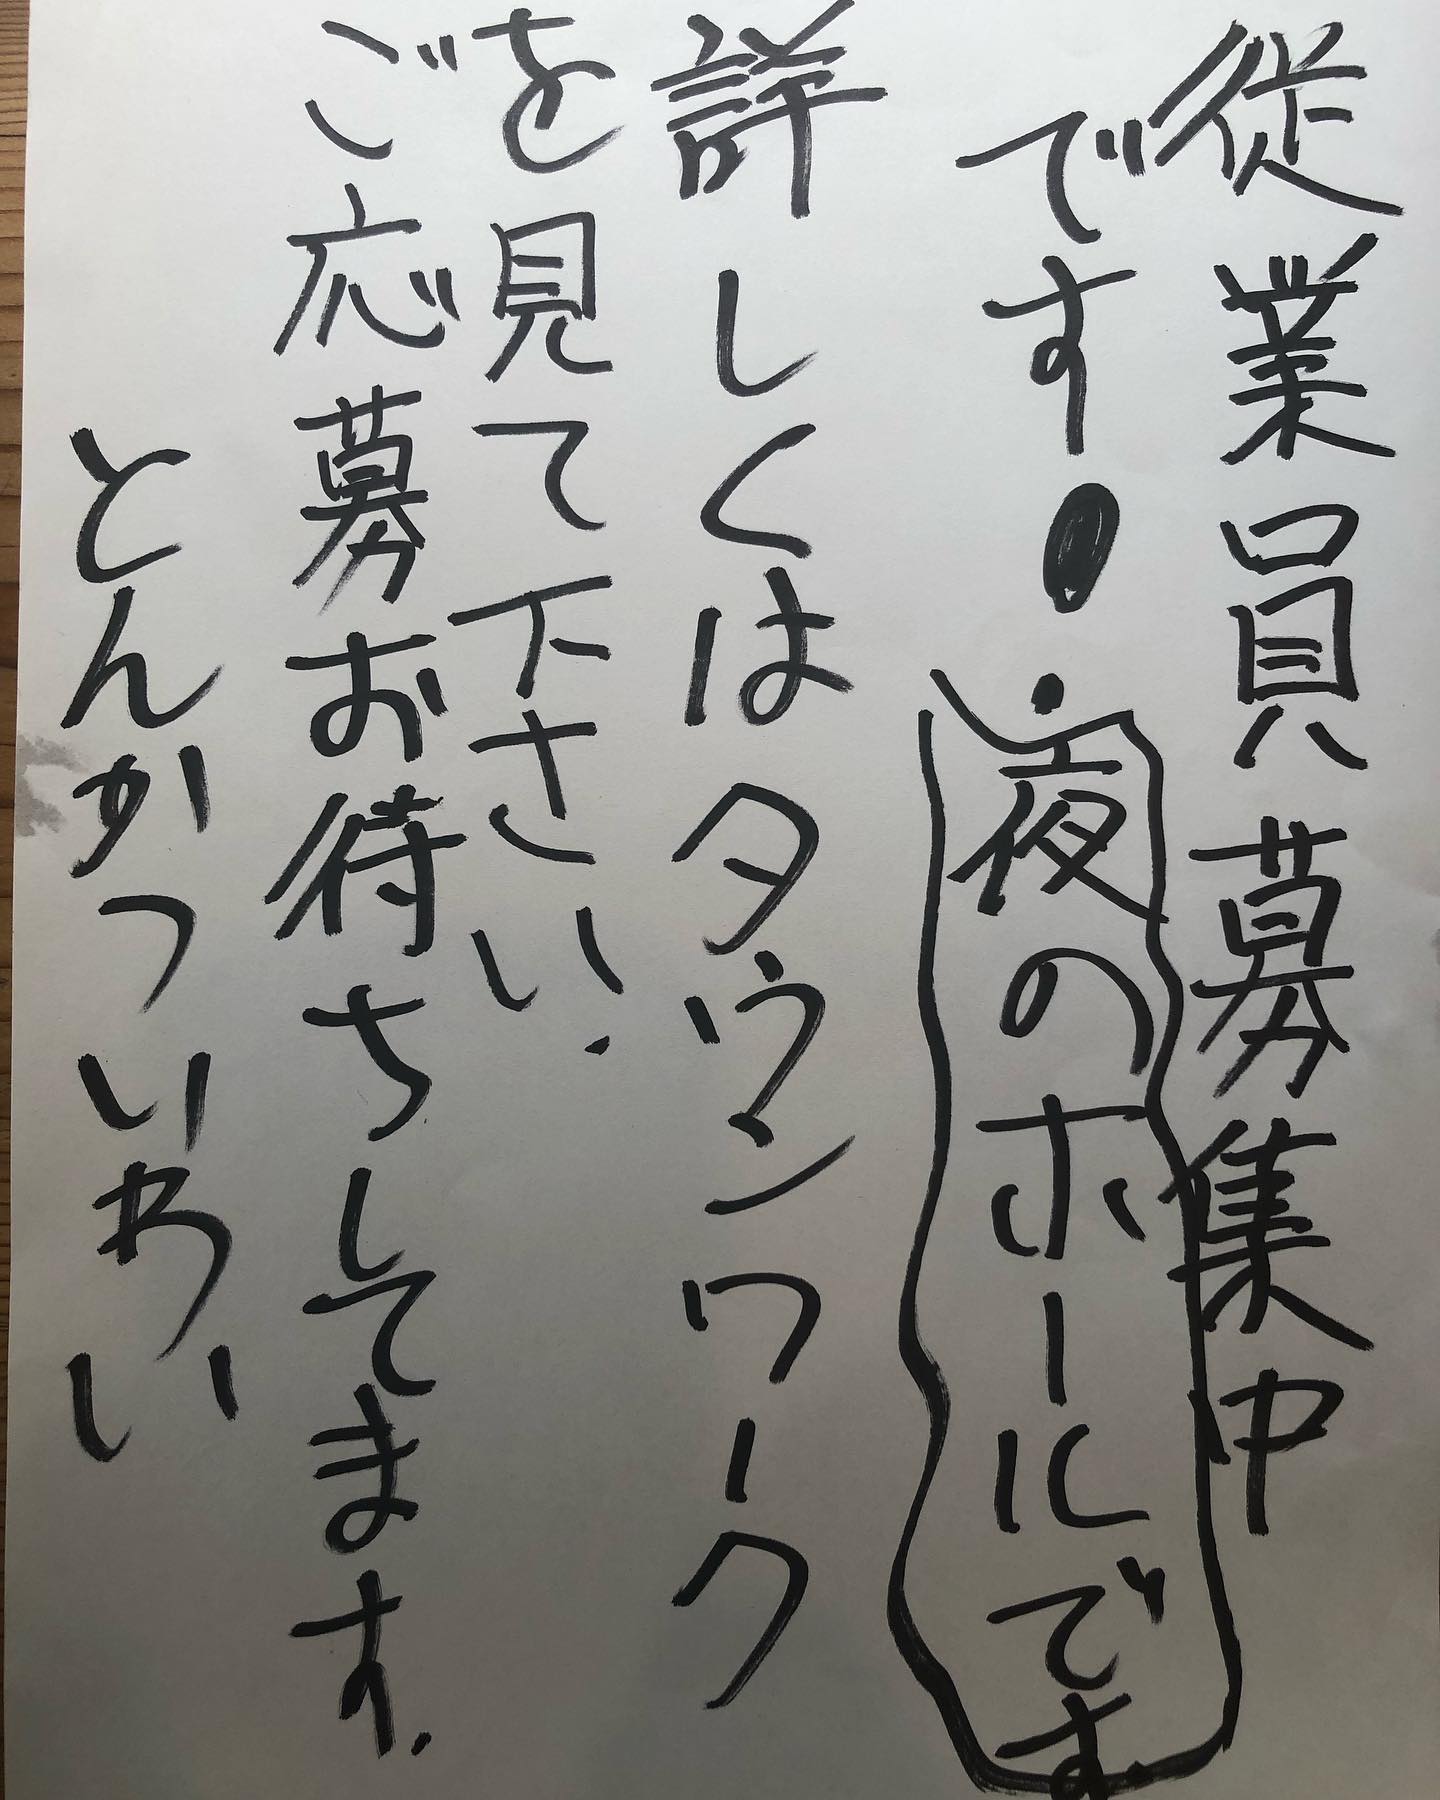 従業員募集中
です!夜のホールです
詳しくはタウンワーク
を見て下さい.
ご応募お待ちしてます.
とんかついわい